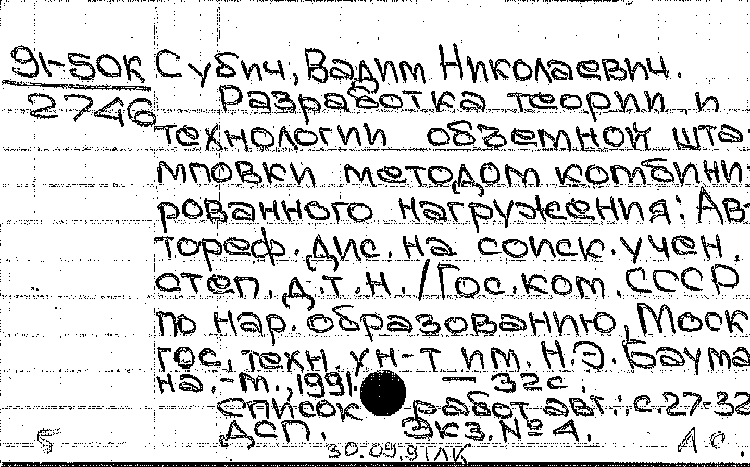 91-50к Субич, Вадим Николаевич.
2746 Разработка теории и
технологии обземной шта-
мповки методом комбини-
рованного нагружения: Ав-
тореф. дис. на соиск. учен.
степ. д.т.н. / Гос. ком. СССР
по нар. образованию, Моск.
гос. техн. ун-т им. Н.Э. Баума-
на. -м., 1991. — 32с.
Список работ авт.: с. 27-32
ДСП. Экз. № 4.
30.09.91